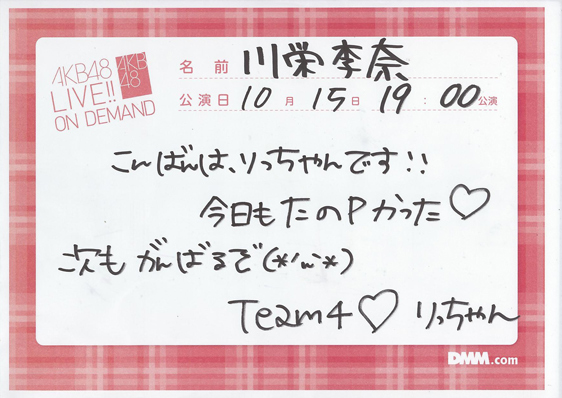 AKB48
LIVE!!
ON DEMAND
AKB
48
名前 川栄李奈
公演日 10月 15日 19:00公演
こんばんは、りっちゃんです!!
今日もたのPかった♡
次もがんばるぞ(*´ω`*)
Team4♡りっちゃん
DMM.com